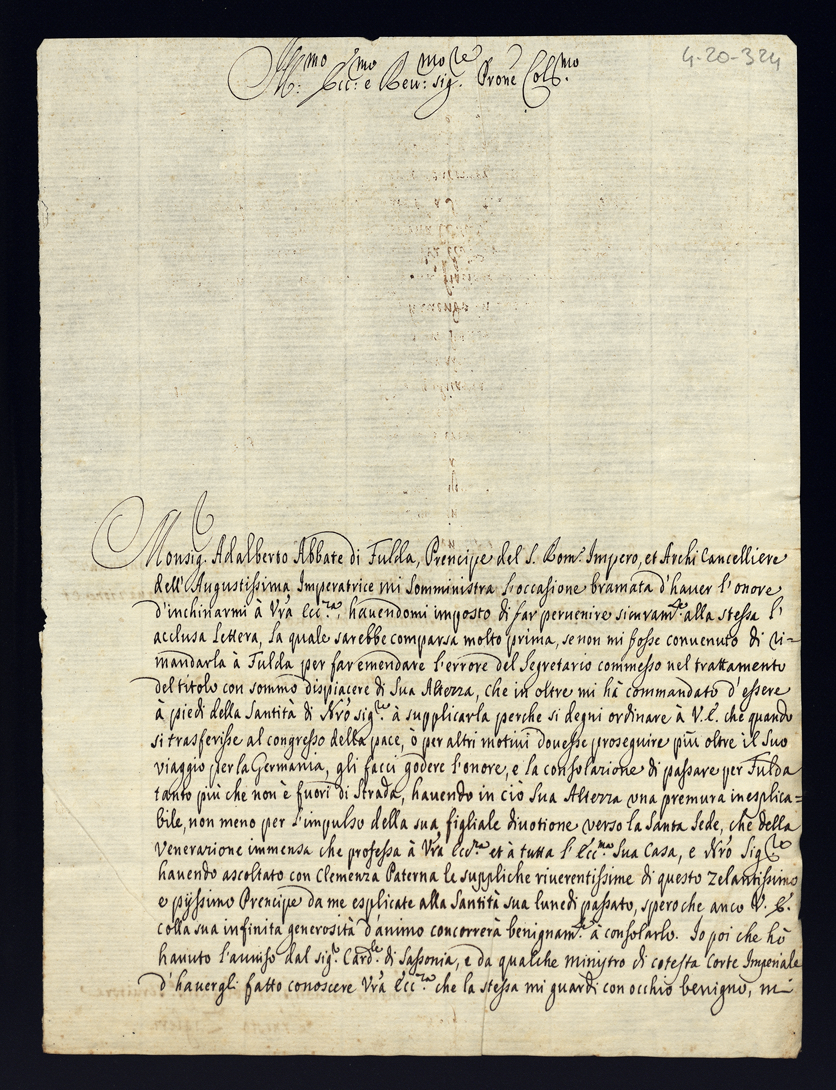 4-20-324
Ill:mo Ecc:mo e Reu:mo sig.re Prone Col.mo
Monsig. Adalberto Abbate di Fulda, Prencipe del S. Rom.o Impero, et Archi Cancelliere
dell'Augustissima Imperatrice mi somministra l'occasione bramata d'hauer l'onore
d'inchinarmi à Vrà Ecc.za, hauendomi imposto di far peruenire sicuram.te alla stessa l'
acclusa lettera, la quale sarebbe comparsa molto prima, se non mi fosse conuenuto di ri=
mandarla à Fulda per far emendare l'errore del Segretario commesso nel trattamento
del titolo con sommo dispiacere di Sua Altezza, che in oltre mi hà commandato d'essere
à piedi della Santità di Nrò sig.re à supplicarla perche si degni ordinare à V.E. che quando
si trasferisse al congresso della pace, ò per altri motiui douesse proseguire più oltre il suo
viaggio per la Germania, gli facci godere l'onore, e la consolazione di passare per Fulda
tanto più che non è fuori di strada, hauendo in ciò Sua Altezza vna premura inesplica=
bile, non meno per l'impulso della sua figliale diuotione verso la Santa Sede, che della
venerazione immensa che professa à Vrà Ecc.za et à tutta l'Ecc.ma Sua Casa, e Nrò Sig.re
hauendo ascoltato con clemenza Paterna le suppliche riuerentissime di questo zelantissimo
e pijssimo Prencipe da me esplicate alla Santità sua lunedi passato, spero che anco V. E.
colla sua infinita generosità d'animo concorrerà benignam.te à consolarlo. Io poi che hò
hauuto l'auuiso dal sig.r Card.le di Sassonia, e da qualche ministro di cotesta Corte Imperiale
d'hauergli fatto conoscere Vrà Ecc.za che la stessa mi guardi con occhio benigno, m'